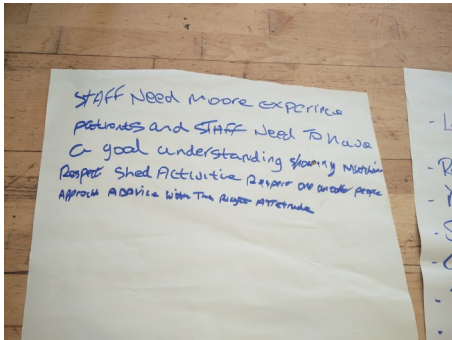 STAFF Need Moore experince
patients and STAFF Need To have
a good understanding showing
Respect Shed Activitie Respect people
Approch Addvice With The Right Attetrude
- L
- R
- Y
- S